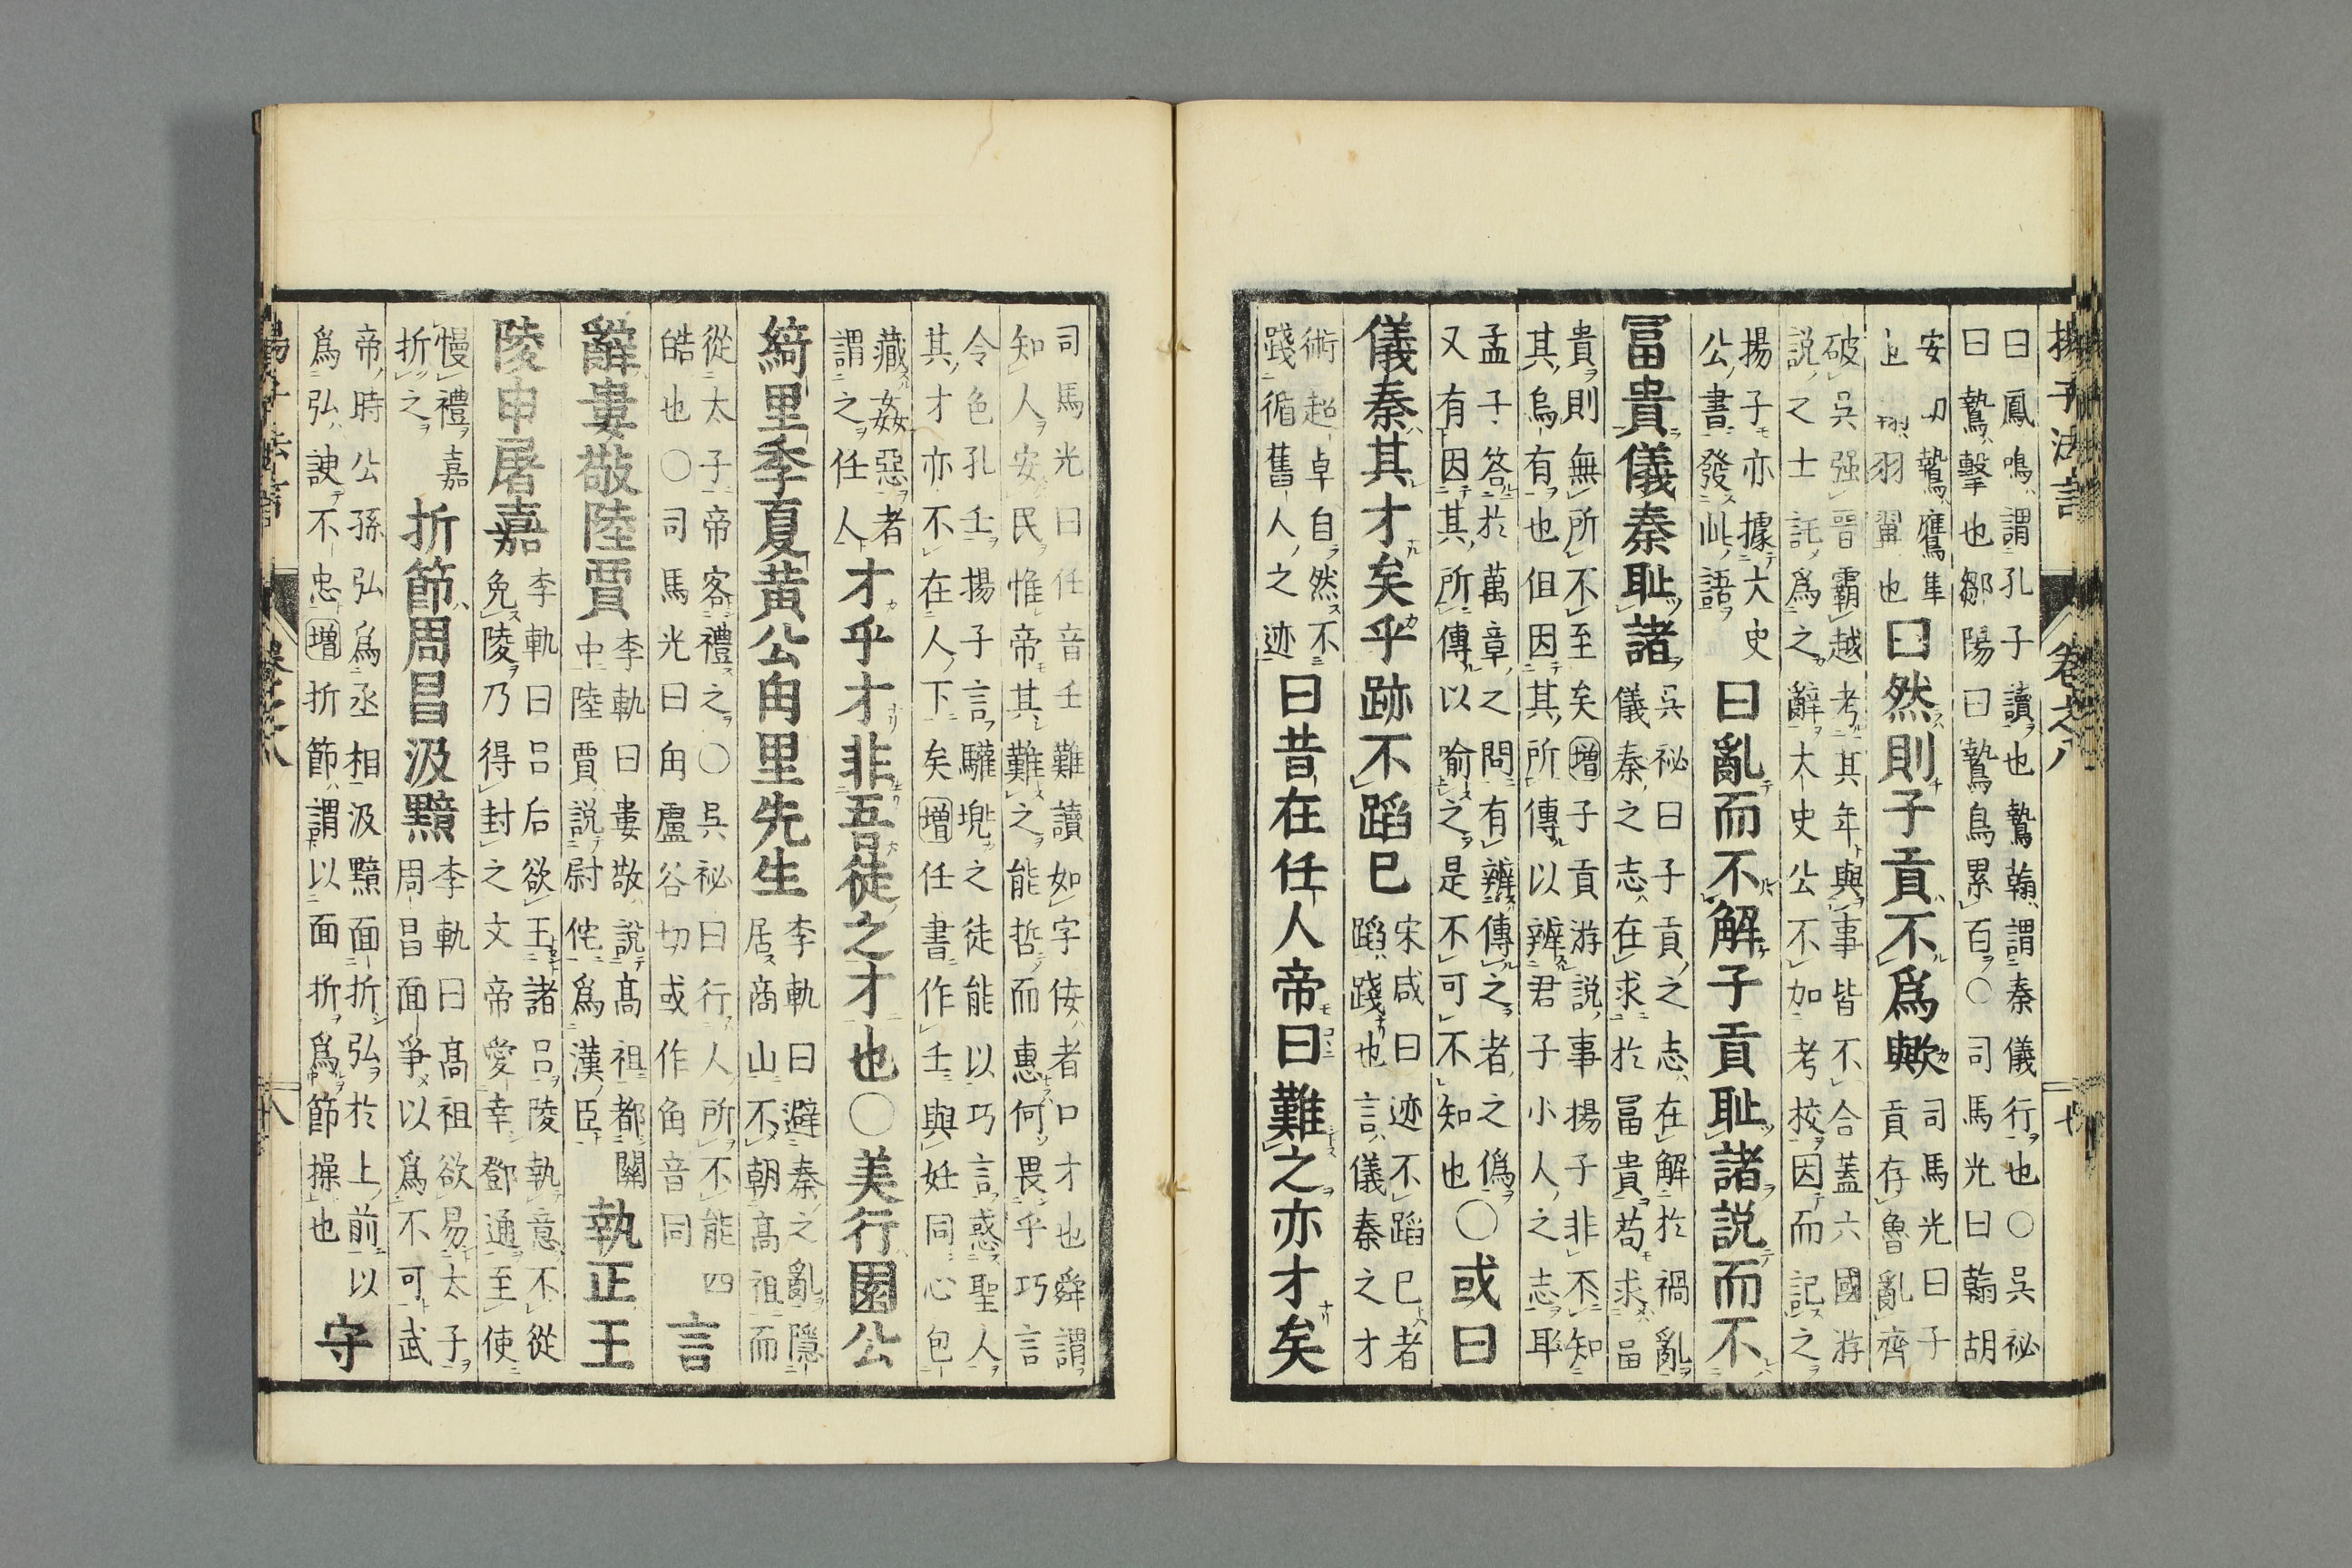 揚子法言 卷之八
曰鳳鳴謂孔子讀也鷙翰謂秦儀行也〇吳祕
曰鷙擊也鄒陽曰鷙鳥累百〇司馬光曰翰胡
安切鷙鷹隼
上 羽翼也
曰然則子貢不爲歟
司馬光曰子
貢存魯亂齊
破吳强晉霸越考其年與事皆不合蓋六國游
説之士託爲之辭太史公不加考校因而記之
揚子亦據大史
公書發此語
曰亂而不解子貢恥諸説而不
冨貴儀秦恥諸
吳祕曰子貢之志在解於禍亂
儀秦之志在求於冨貴苟求冨
貴則無所不至矣增子貢游説事揚子非不知
其烏有也但因其所傳以辨君子小人之志耳
孟子答於萬章之問有辨傳之者之僞
又有因其所傳以喻之是不可不知也
〇或曰
儀秦其才矣乎跡不蹈已
宋咸曰迹不蹈已者
蹈踐也言儀秦之才
術超卓自然不
踐循舊人之迹
曰昔在任人帝曰難之亦才矣
司馬光曰任音壬難讀如字佞者口才也舜謂
知人安民惟帝其難之能哲而惠何畏乎巧言
令色孔壬揚子言驩兜之徒能以巧言惑聖人
其才亦不在人下矣增任書作壬與妊同心包
藏姦惡者
謂之任人
才乎才非吾徒之才也〇美行園公
綺里季夏黃公甪里先生
李軌曰避秦之亂隱
居商山不朝髙祖而
從太子帝客禮之〇吳祕曰行人所不能四
皓也〇司馬光曰甪盧谷切或作角音同
言
辭婁敬陸賈
李軌曰婁敬説髙祖都關
中陸賈説尉佗爲漢臣
執正王
陵申屠嘉
李軌曰呂后欲王諸呂陵執意不從
免陵乃得封之文帝愛幸鄧通至使
慢禮嘉
折之
折節周昌汲黯
李軌曰髙祖欲易太子
周昌面爭以爲不可武
帝時公孫弘爲丞相汲黯面折弘於上前以
爲弘諛不忠增折節謂以面折爲節操也
守